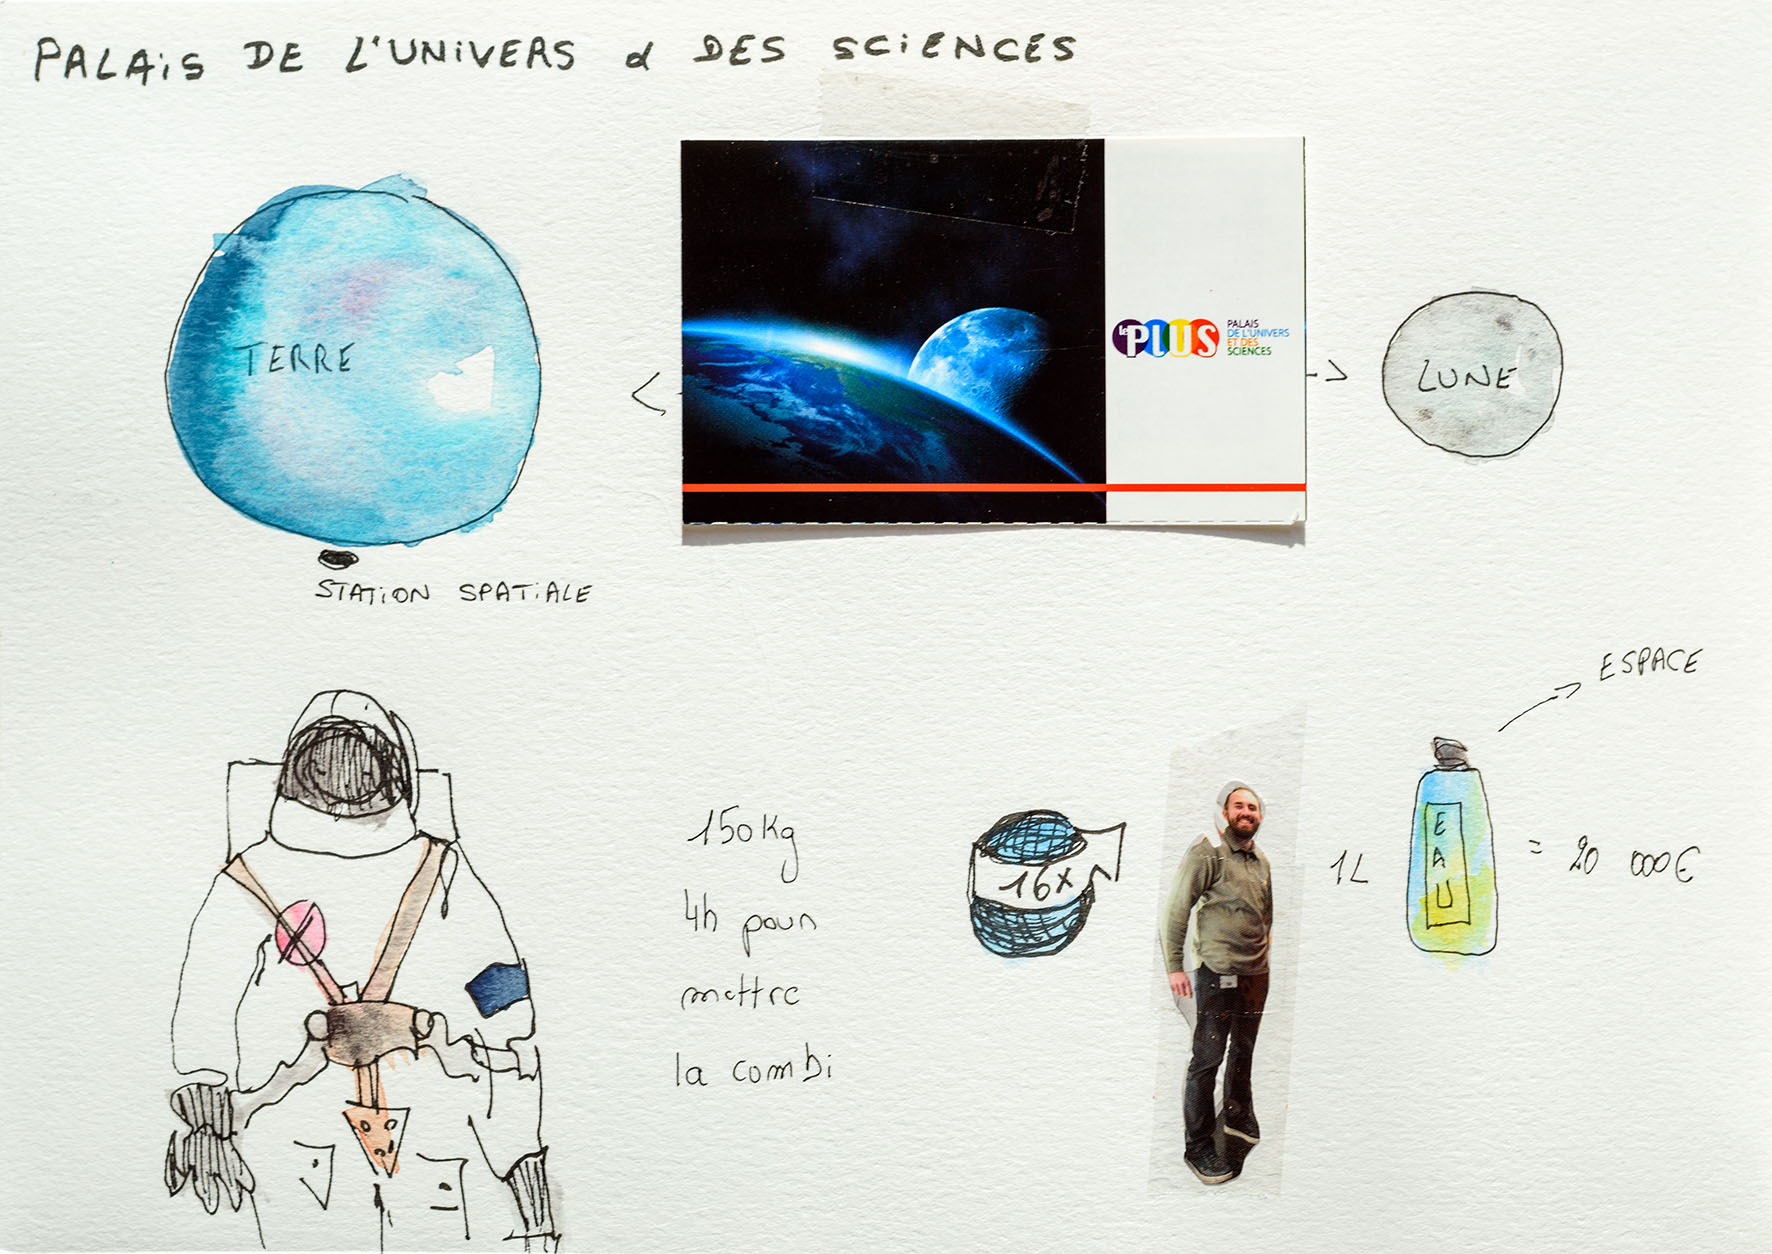 PALAiS DE L'UNiVERS & DES SCiENCES
le PLUS
PALAIS
DE L'UNIVERS
ET DES
SCIENCES
TERRE
LUNE
STATiON SPATiALE
ESPACE
150Kg
4h pour
mettre
la combi
16x
1L
EAU
= 20 000€